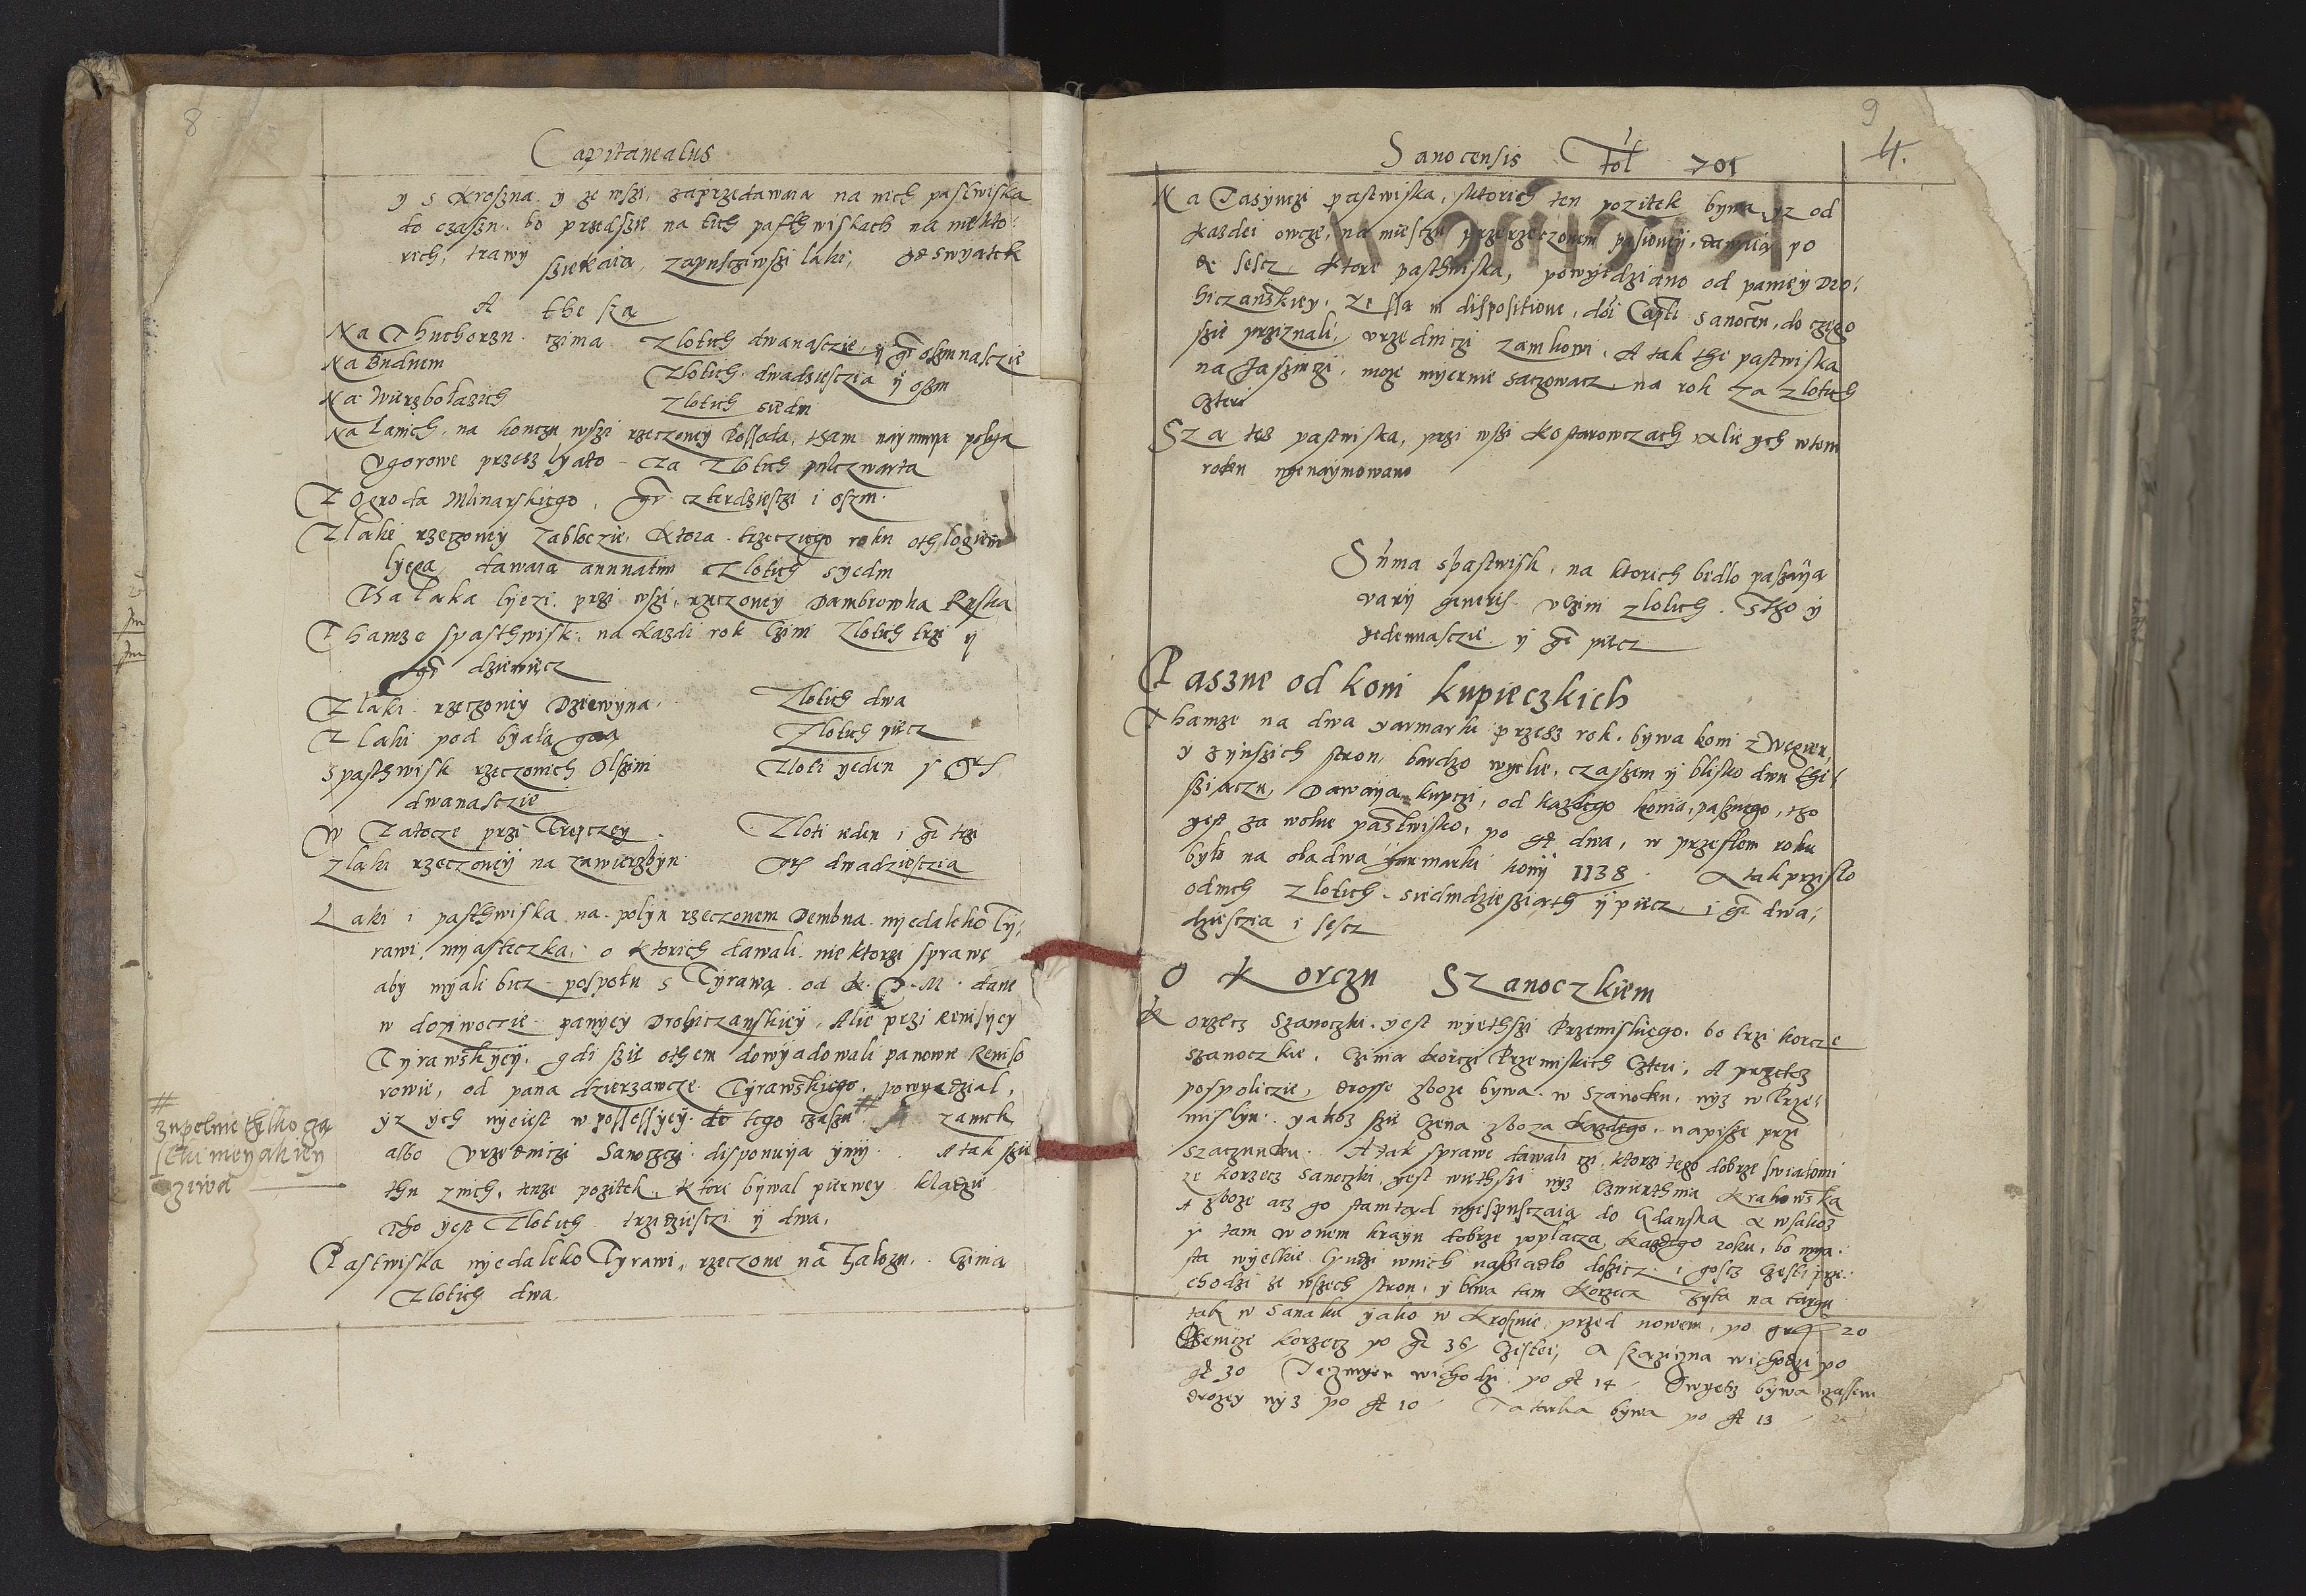 8
Capitaneatus
y s Kroszna y ze wszi, zaprzedawaia na nich pastwiska
do czaszu. bo przedszie na tich pasthwiskach na niekto:
rich, trawy sziekaia, zapusciwszi laki, od swyatek
A the sza
Na Thuchorzu czima Zlotich dwanasczie, ij gr oszmnasczie
Na Budnem Zlotich dwadziesczia ij oszm
Na Wierzbolazich Zlotich siedm
Na Lanich, na konczu wszi rzeczoney Possada, tham naymuya polya
Ugorowe przesz lyato - Za Zlotich pulczwarta
Z Ogroda Mlinarskiego, gr czterdziesczi i oszm.
Z laki rzeczoney Zabloczie, Ktora trzecziego roku othlogiem
lyega, dawaia annuatim Zlotich syedm
Tha laka lyezi przi wszi, rzeczoney Dambrowka Ruska
Thamze spasthwisk, na kazdi rok czini Zlotich trzi ij
gr dziewiecz
Z laki rzeczoney Dziewyna. Zlotich dwa
Z laki pod byala gora Zlotich piecz
Spasthwisk rzeczonich Olszini Zloti yeden y gr
dwanasczie
W Zatocze przi Trepczey Zloti ieden i gr trzi
Z laki rzeczoneij na zawierzbyu Gr dwadziesczia
Laki i pasthwiska na polyu rzeczonem Dembna nyedaleko Ty:
rawi myasteczka, o Ktorich dawali niektorzi sprawe
aby myali bicz pospolu s Tyrawa od K. J. M. dane
w doziwoczie panyey Drohiczanskiey. Alie przi Rewisyey
Tyrawskyey, gdi szie othem dowyadowali panowie Rewiso
rowie, od pana dzierzawcze Tyrawskiego, powyedzial,
yz ych nyeiest w possessyey do tego czaszu # zamek
albo Urzedniczi Sanoczci disponuya ymij. A tak szie
thu znich, tenze pozitek, Ktori bywal pierwey kladzie
Tho yest Zlotich trzidziesczi y dwa.
# zupelnie tylko za
Pastwiska nyedaleko Tyrawi, rzeczone na Zalozu. Czinia
Zlotich dwa
9
4.
Sanocensis Fol 701
Na Jasyuczi pastwiska, sktorich ten pozitek bywa, yz od
kazdei owcze, na miesczu przerzeczonem pasioney, dawaia po
sescz Ktore pasthwiska, powyedziano od paniey Dro:
hiczanskiey, ze ssa in dispositione, dni Capti Sanocen, do czego
szie prziznali, urzedniczi zamkowi. A tak the pastwiska
na Jaszinczi, moze myernie saczowacz na rok za Zlotich
czteri
Sza tez pastwiska, przi wszi Kostarowczach alie ych wtem
roku nyenaymowano
Suma spastwisk, na ktorich bidlo pasaya
varij generis uczini zlotich. Stho y
yedennasczie ij gr piecz
Paszne od koni kupieczkich
Thamze na dwa yarmarki przesz rok, bywa koni z Wegier,
y zynszich stron, bardzo wyelie, czaszem y blisko dwu thi:
sziaczu, Dawaya kupczi, od kazdego konia, pasznego, tho
yest za wolne pastwisko, po gr dwa, w przeslem roku
bylo na obadwa yarmarki konij 1138. A tak przislo
odnich zlotich siedmdziesziath ij piecz i gr dwa:
dziesczia i sescz
O Korczu Szanoczkiem
Korzecz Szanoczki yest wyethszi Przemiskiego, bo trzi korcze
szanoczkie, Czinia korczi Przemiskich Czteri, A przetez
pospoliczie, drosse zboze bywa w Szanoku, nyz w Prze:
mislyu. yakoz szie Czena zboza kazdego, napisze przi
szaczunku. A tak sprawe dawali czi, ktorzi tego dobrze swiadomi
ze korzecz Sanoczki, yest wiethszi nyz Czwierthnia Krakowska
A zboze acz go stamtad nyespusczaia do Gdanska a wsakoz
y tam w onem krayu dobrze poplacza kazdego roku, bo mya:
sta wyelkie liudzi wnich nasziadlo dosicz i goscz Czesti prze:
chodzi ze wszech stron, y biwa tam Korzecz Zyta na targu
tak w Sanoku yako w Krosnie, przed nowem, po gr 20
Pszenicze korzecz po gr 36 Czistei, a skazizna wichodzi po
gr 30 Jeczmyen wichodzi po gr 14 Owyesz bywa czasem
drozey nyz po gr 10 Tatarka bywa po gr 13